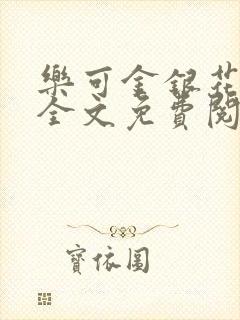 樂可金銀花
全文免費閱
寶依圓